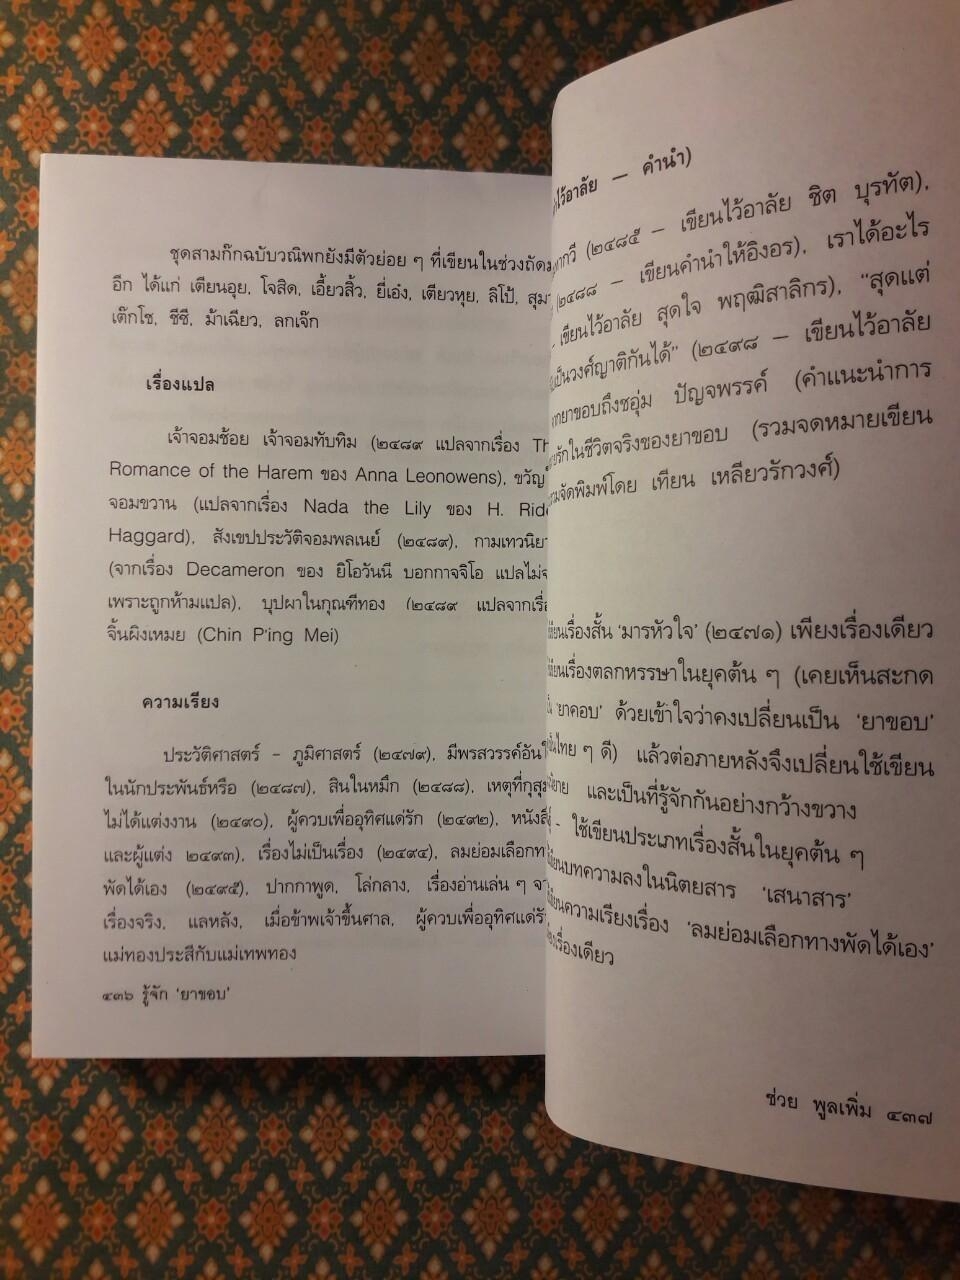 ชุดสามก๊กฉบับวณิพกยังมีตัวย่อย ๆ ที่เขียนในช่วงถัด
อีก ได้แก่ เตียนอุย, โจสิด, เอี้ยวสิ้ว, ยี่เอ๋ง, เตียวหุย, ลิโป้,
เต๊กโช, ชีซี, ม้าเฉียว, ลกเจ๊ก
เรื่องแปล
เจ้าจอมช้อย เจ้าจอมทับทิม (๒๔๘๙ แปลจากเรื่อง
Romance of the Harem ของ Anna Leonowens),
จอมขวาน (แปลจากเรื่อง Nada the Lily ของ H.
Haggard), สังเขปประวัติจอมพลเนย์ (๒๔๘๙),
(จากเรื่อง Decameron ของ ยิโอวันนี บอกกาจจิโอ
เพราะถูกห้ามแปล), บุปผาในกุณฑีทอง (๒๔๘๙
จิ้นผิงเหมย (Chin P'ing Mei)
ความเรียง
ประวัติศาสตร์ - ภูมิศาสตร์ (๒๔๗๙),
ในนักประพันธ์หรือ (๒๔๘๗), สินในหมึก (๒๔๘๘),
ไม่ได้แต่งงาน (๒๔๙๐), ผู้ควบเพื่ออุทิศแด่รัก (๒๔๙๒),
และผู้แต่ง ๒๔๙๓), เรื่องไม่เป็นเรื่อง (๒๔๙๔),
พัดได้เอง (๒๔๙๕), ปากกาพูด, โล่กลาง, เรื่องอ่านเล่น ๆ
เรื่องจริง, แลหลัง, เมื่อข้าพเจ้าขึ้นศาล,
แม่ทองประสีกับแม่เทพทอง
๔๓๖ รู้จัก 'ยาขอบ'
ไว้อาลัย — คำนำ)
(๒๔๘๕ — เขียนไว้อาลัย ชิต บุรทัต),
(๒๔๘๘ — เขียนคำนำให้อิงอร), เราได้อะไร
— เขียนไว้อาลัย สุดใจ พฤฒิสาลิกร), "สุดแต่
เป็นวงศ์ญาติกันได้" (๒๔๙๘ — เขียนไว้อาลัย
ยาขอบถึงชอุ่ม ปัญจพรรค์ (คำแนะนำการ
รักในชีวิตจริงของยาขอบ (รวมจดหมายเขียน
จัดพิมพ์โดย เทียน เหลียวรักวงศ์)
เขียนเรื่องสั้น 'มารหัวใจ' (๒๔๗๑) เพียงเรื่องเดียว
เขียนเรื่องตลกหรรษาในยุคต้น ๆ (เคยเห็นสะกด
'ยาคอบ' ด้วยเข้าใจว่าคงเปลี่ยนเป็น 'ยาขอบ'
ไทย ๆ ดี) แล้วต่อภายหลังจึงเปลี่ยนใช้เขียน
และเป็นที่รู้จักกันอย่างกว้างขวาง
- ใช้เขียนประเภทเรื่องสั้นในยุคต้น ๆ
เขียนบทความลงในนิตยสาร 'เสนาสาร'
เขียนความเรียงเรื่อง 'ลมย่อมเลือกทางพัดได้เอง'
เรื่องเดียว
ช่วย พูลเพิ่ม ๔๓๗